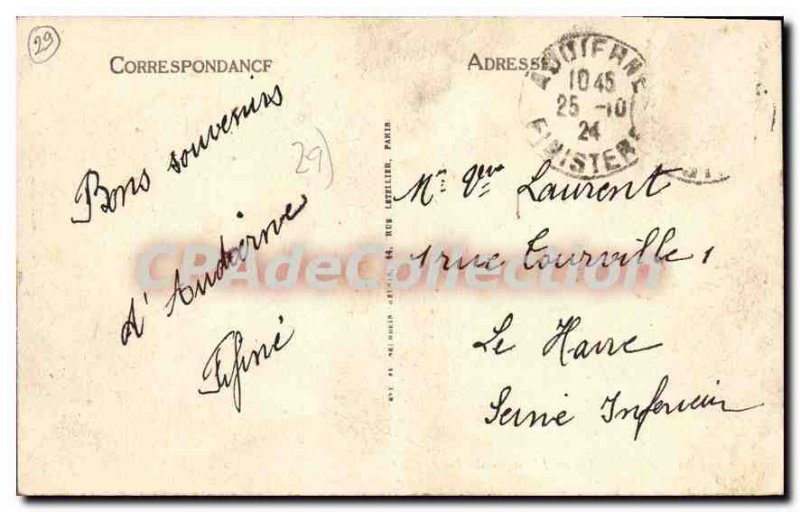 29
CORRESPONDANCE
ADRESSE
AUDIERNE
10 45
25 -10
24
FINISTERE
Bons souvenirs
d'Audierne
29)
Mme Vve Laurent
1 rue Tourville 1
Le Havre
Seine Inferieure
44, RUE LETELLIER, PARIS
CPAdeCollection